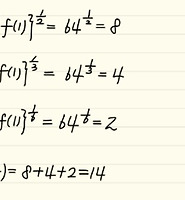 f(1)}^{1/2} = 64^{1/2} = 8
f(1)}^{1/3} = 64^{1/3} = 4
f(1)}^{1/6} = 64^{1/6} = 2
)= 8+4+2=14